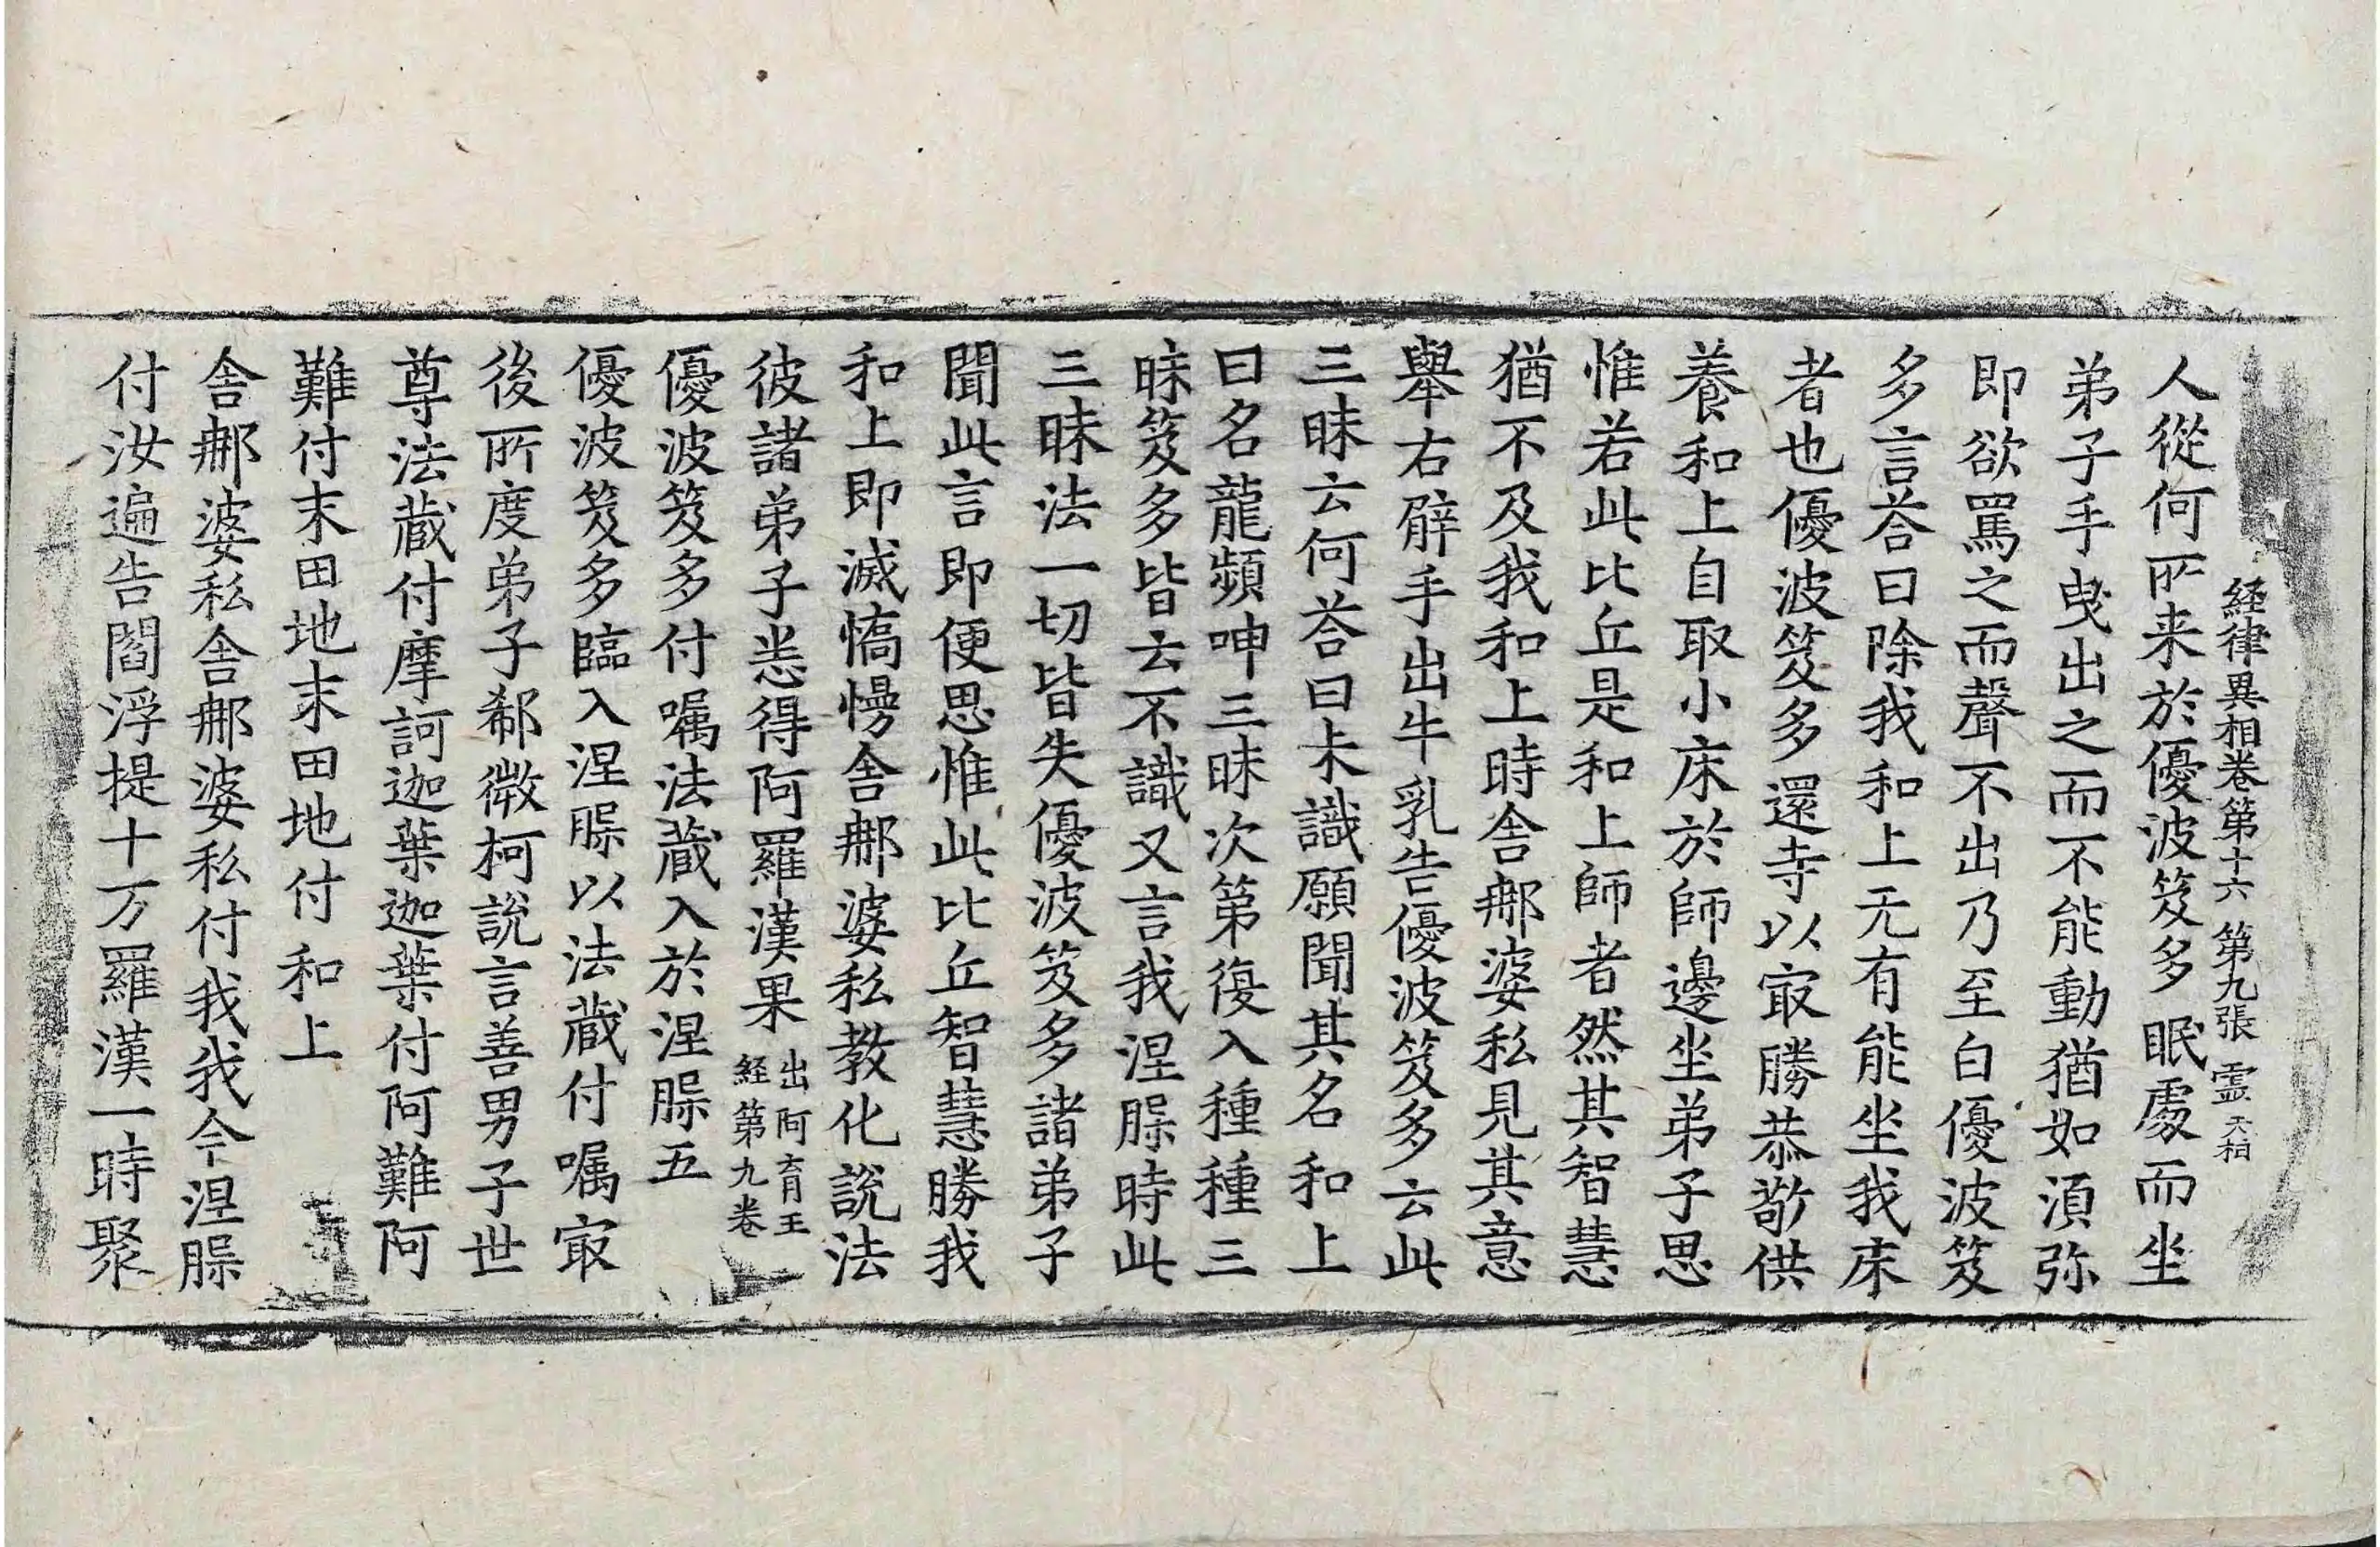 経律異相卷第十六 第九張 霊 天柏
人從何所来於優波笈多眠處而坐
弟子手曳出之而不能動猶如湏弥
即欲罵之而聲不出乃至白優波笈
多言荅曰除我和上无有能坐我床
者也優波笈多還寺以㝡勝恭敬供
養和上自取小床於師邊坐弟子思
惟若此比丘是和上師者然其智慧
猶不及我和上時舎郍婆私見其意
舉右臂手出牛乳告優波笈多云此
三昧云何荅曰未識願聞其名和上
曰名龍頻呻三昧次第復入種種三
昧笈多皆云不識又言我涅脲時此
三昧法一切皆失優波笈多諸弟子
聞此言即便思惟此比丘智慧勝我
和上即滅憍慢舎郍婆私教化說法
彼諸弟子悉得阿羅漢果出阿育王経第九卷
優波笈多付嘱法蔵入於涅脲五
優波笈多臨入涅脲以法蔵付嘱㝡
後所度弟子郗微柯說言善男子世
尊法蔵付摩訶迦葉迦葉付阿難阿
難付末田地末田地付和上
舎郍婆私舎郍婆私付我我今涅脲
付汝遍告閻浮提十万羅漢一時聚